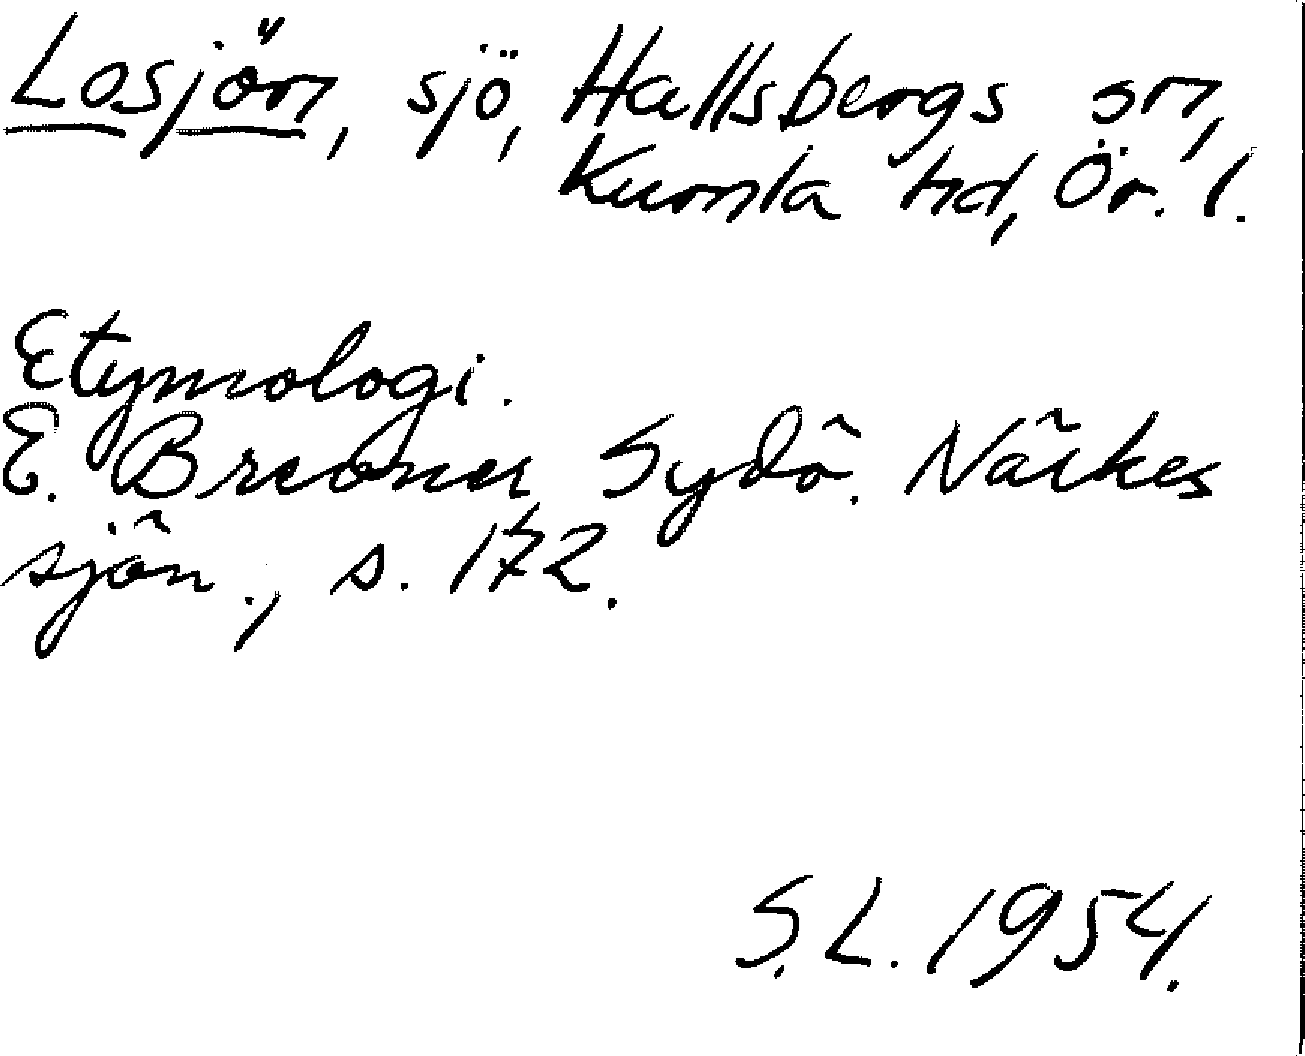 Losjön, sjö, Hallsbergs sn,
Kumla hd, Ör. l.
Etymologi.
E. Brevner Sydö. Närkes
sjön., s. 172.
S. L. 1954.